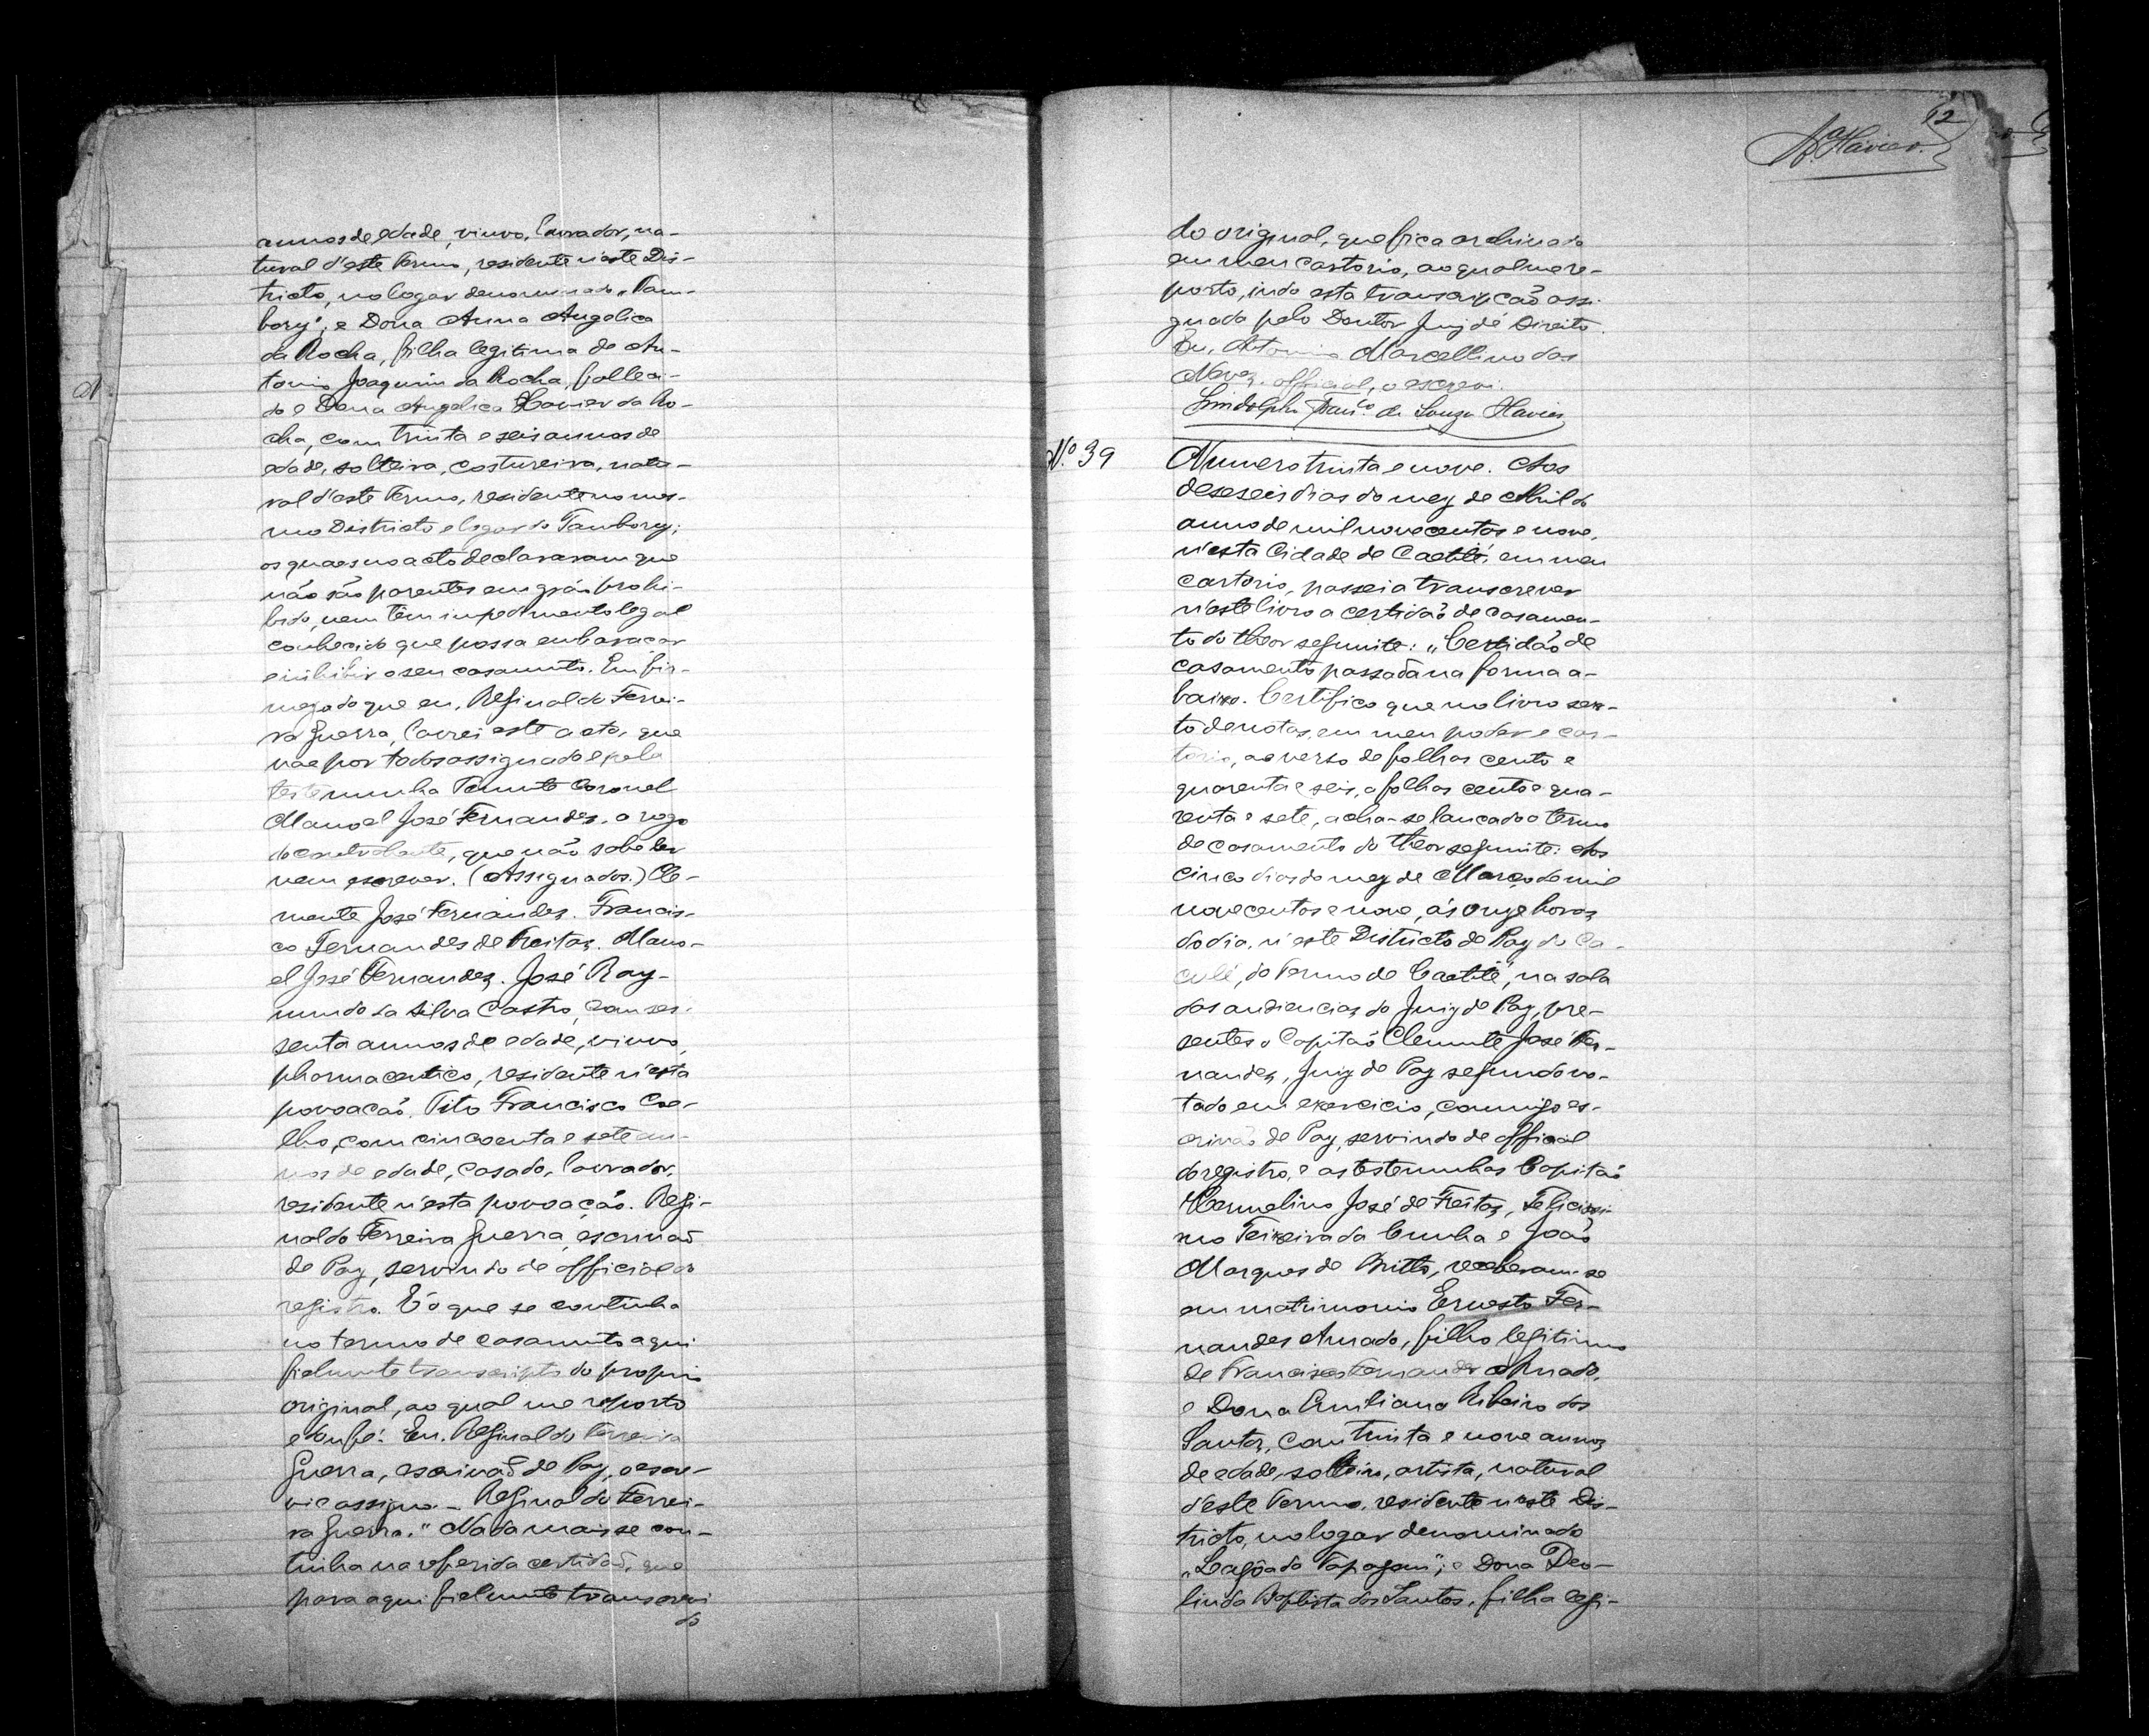 annos de edade, viuvo, lavrador, na-
tural d'este Termo, residente n'este Dis-
tricto, no logar denominado „Tam-
bory"; e Dona Anna Angelica
da Rocha, filha legitima de An-
tonio Joaquim da Rocha, falleci-
do e Dona Angelica Xavier da Ro-
cha, com trinta e seis annos de
edade, solteira, costureira, natu-
ral d'este Termo, residente no mes-
mo Districto e logar do Tambory;
os quaes no acto declararam que
não são parentes em gráo prohi-
bido, nem têm impedimento legal
conhecido que possa embaraçar
e inhibir o seu casamento. Em fir-
meza do que eu, Reginaldo Ferrei-
ra Guerra, lavrei este acto, que
vae por todos assignado e pela
testemunha Tenente Coronel
Manoel José Fernandes, a rogo
do contrahente, que não sabe ler
nem escrever. (Assignados.) Cle-
mente José Fernandes. Francis-
co Fernandes de Freitas. Mano-
el José Fernandes. José Ray-
mundo da Silva Castro, com ses-
senta annos de edade, viuvo,
pharmaceutico, residente n'esta
povoação. Tito Francisco Coe-
lho, com cincoenta e sete an-
nos de edade, casado, lavrador,
residente n'esta povoação. Regi-
naldo Ferreira Guerra, escrivaõ
de Paz, servindo de official do
registro. É o que se continha
no termo de casamento aqui
fielmente transcripto do proprio
original, ao qual me reporto
e dou fé. Eu. Reginaldo Ferreira
Guerra, escrivaõ de Paz, o escre-
vi e assigno. – Reginaldo Ferrei-
ra Guerra." Nada mais se con-
tinha na referida certidaõ, que
para aqui fielmente transcrevi
do
12
Xavier.
do original, que fica archivado
em meu cartorio, ao qual me re-
porto, indo esta transcripção assi-
gnada pelo Doutor Juiz de Direito.
Eu, Antonio Marcellino das
Neves, official, o escrevi.
Lindolpho Fran.co de Souza Xavier
N.º 39
Numero trinta e nove. Aos
deseseis dias do mez de Abril do
anno de mil novecentos e nove,
n'esta Cidade de Caetité, em meu
cartorio, passei a transcrever
n'este livro a certidaõ de casamen-
to do theor seguinte: „Certidaõ de
casamento passada na forma a-
baixo. Certifico que no livro sex-
to de notas, em meu poder e car-
torio, ao verso de folhas cento e
quarenta e seis, a folhas cento e qua-
renta e sete, acha-se lançado o termo
de casamento do theor seguinte: Aos
cinco dias do mez de Março de mil
novecentos e nove, ás onze horas
do dia, n'este Districto de Paz do Ca-
culé, do Termo de Caetité, na sala
das audiencias do Juiz de Paz, pre-
sentes o Capitaõ Clemente José Fer-
nandes, Juiz de Paz segundo vo-
tado em exercicio, commigo es-
crivaõ de Paz, servindo de official
do registro, e as testemunhas Capitaõ
Hermelino José de Freitas, Felicissi-
mo Teixeira da Cunha e João
Marques de Britto, receberam-se
em matrimonio Ernesto Fer-
nandes Amado, filho legitimo
de Francisco Fernandes Amado,
e Dona Emiliana Ribeiro dos
Santos, com trinta e nove annos
de edade, solteiro, artista, natural
d'este Termo, residente n'este Dis-
tricto, no logar denominado
„Lagôa da Tapagem"; e Dona Deo-
linda Baptista dos Santos, filha legi-